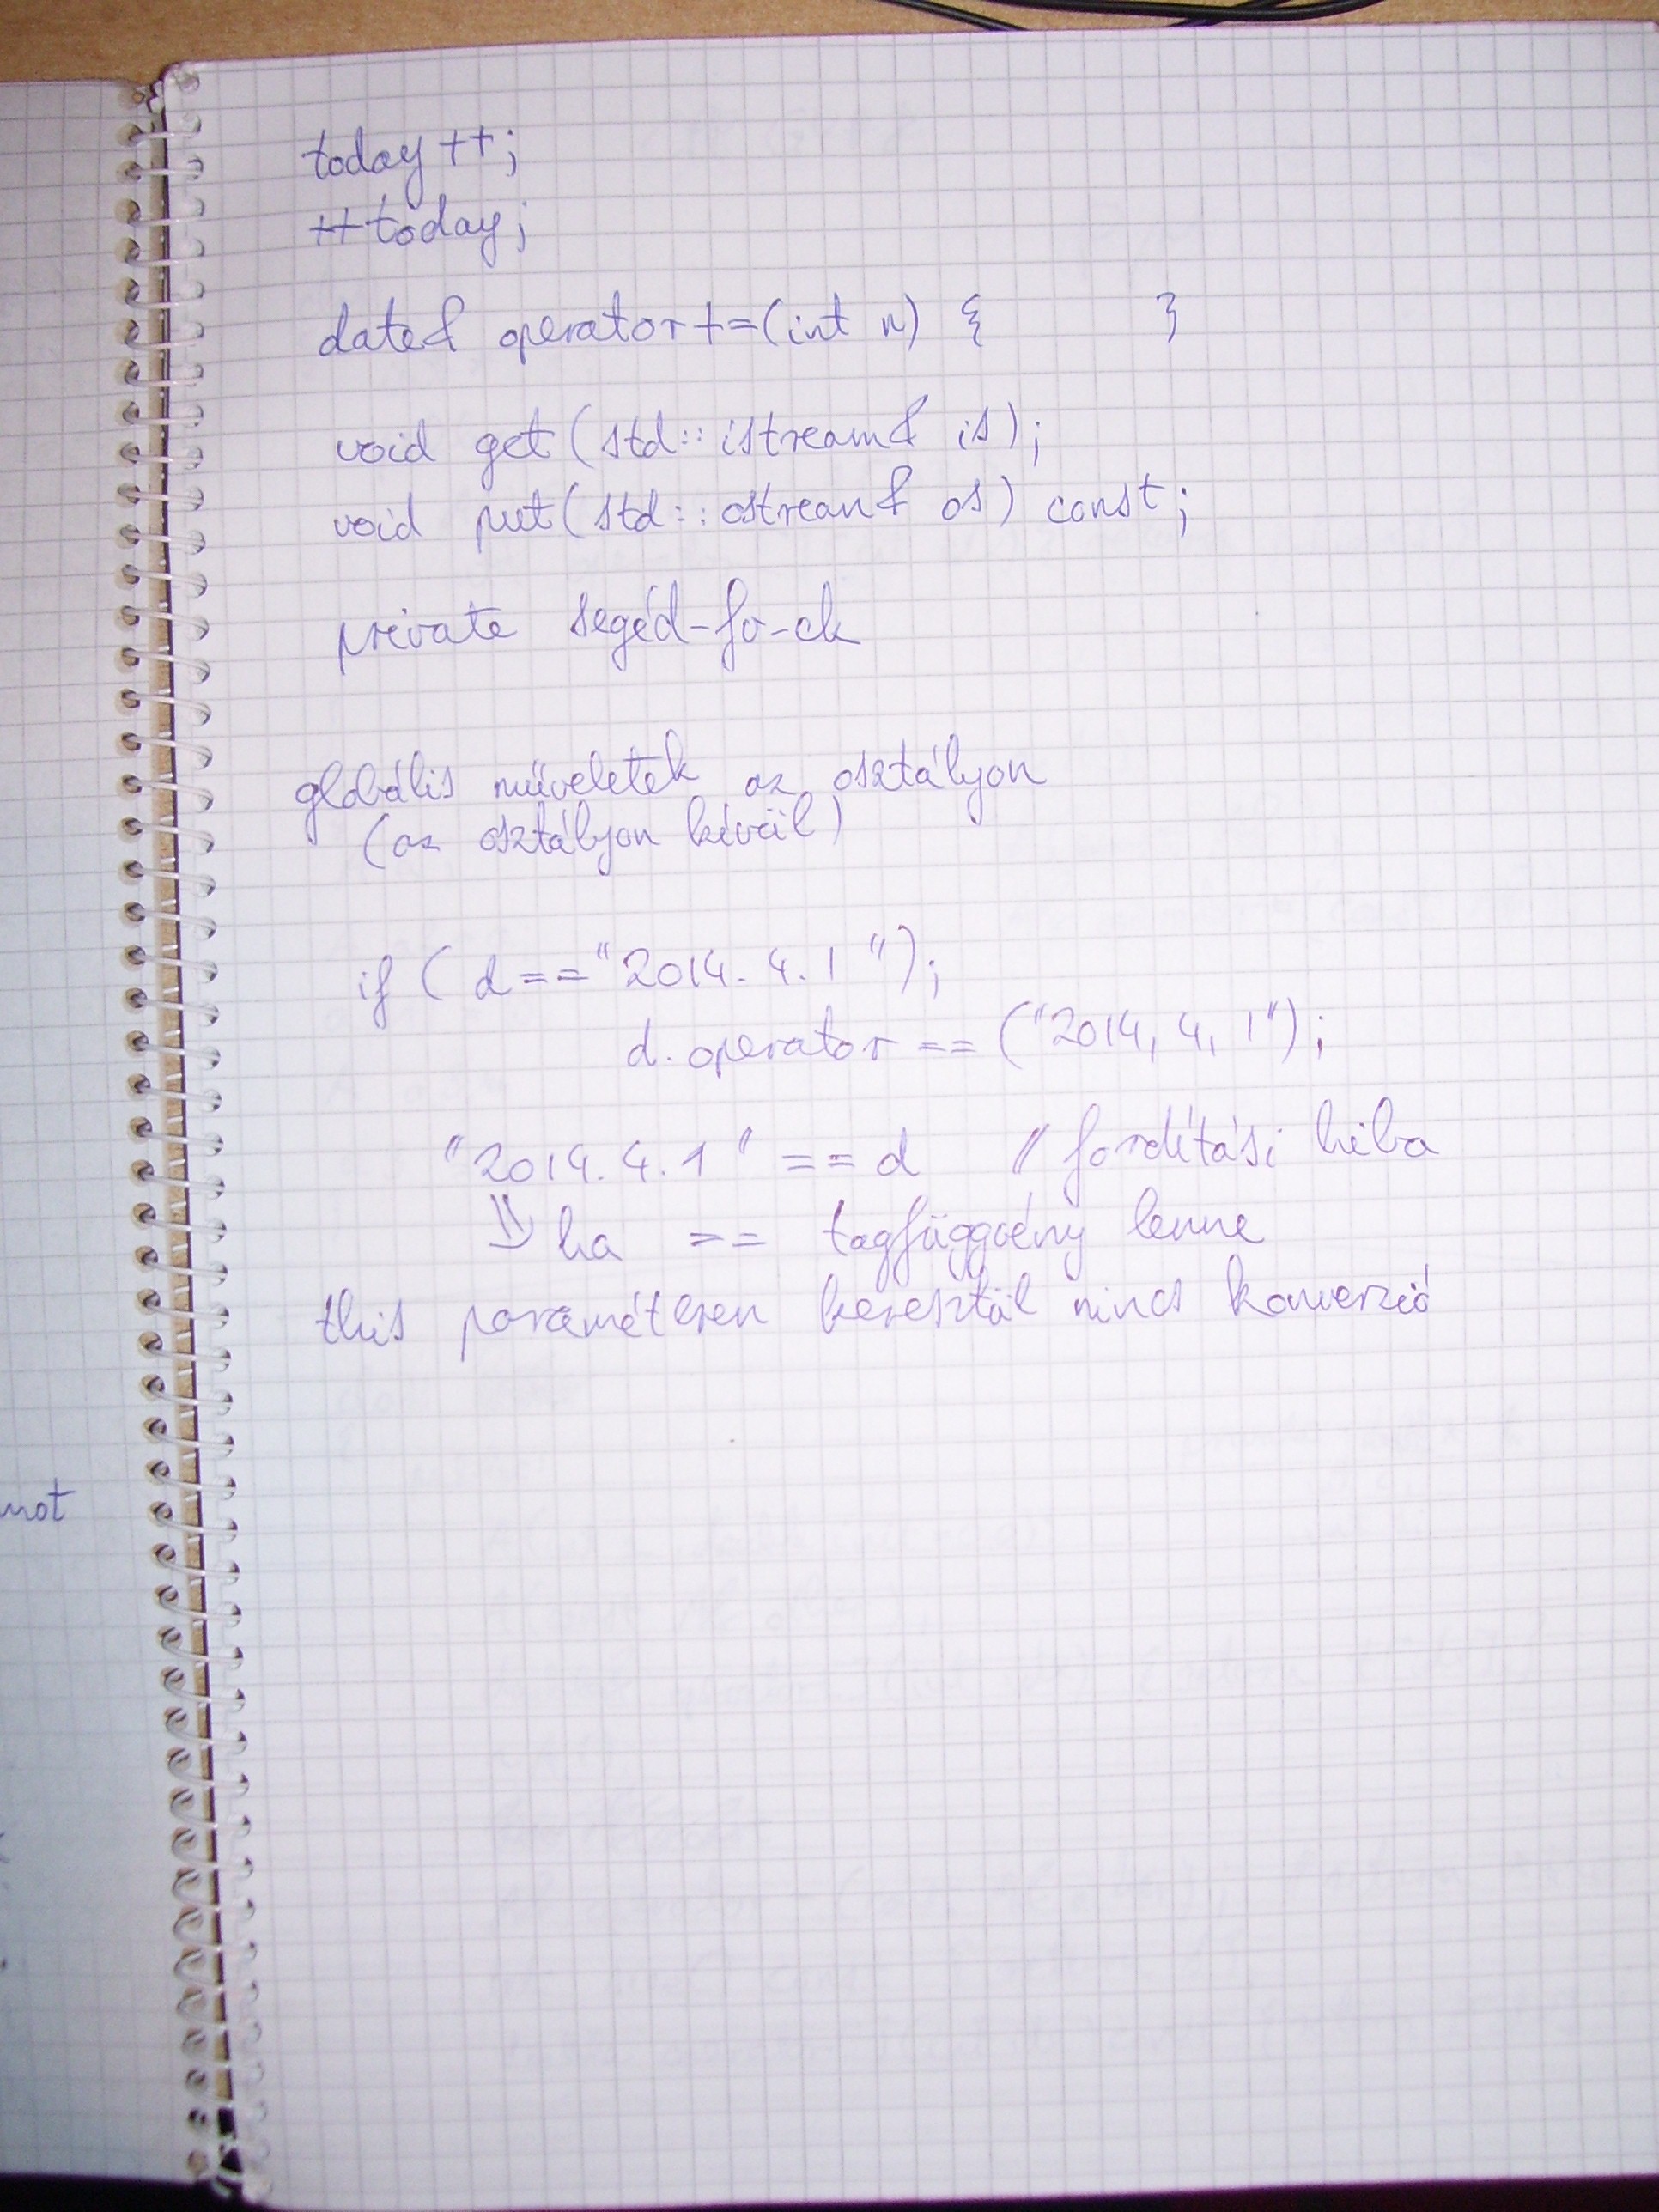 today++;
++today;
date& operator+=(int n) { }
void get(std::istream& is);
void put(std::ostream& os) const;
private segéd-fv-ek
globális műveletek az osztályon
(az osztályon kívül)
if (d=="2014.4.1");
d.operator==("2014,4,1");
"2014.4.1" == d // fordítási hiba
⇓ ha == tagfüggvény lenne
this paraméteren keresztül nincs konverzió
not